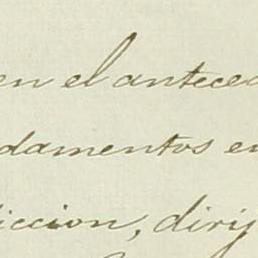 en el anteced
damentos en
iccion, dirij